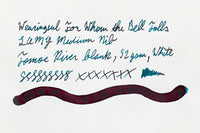 Wearingeul For Whom the Bell Tolls
LAMY Medium Nib
Tomoe River blank, 52gsm, White
SSSSSSSSS XXXXXXX